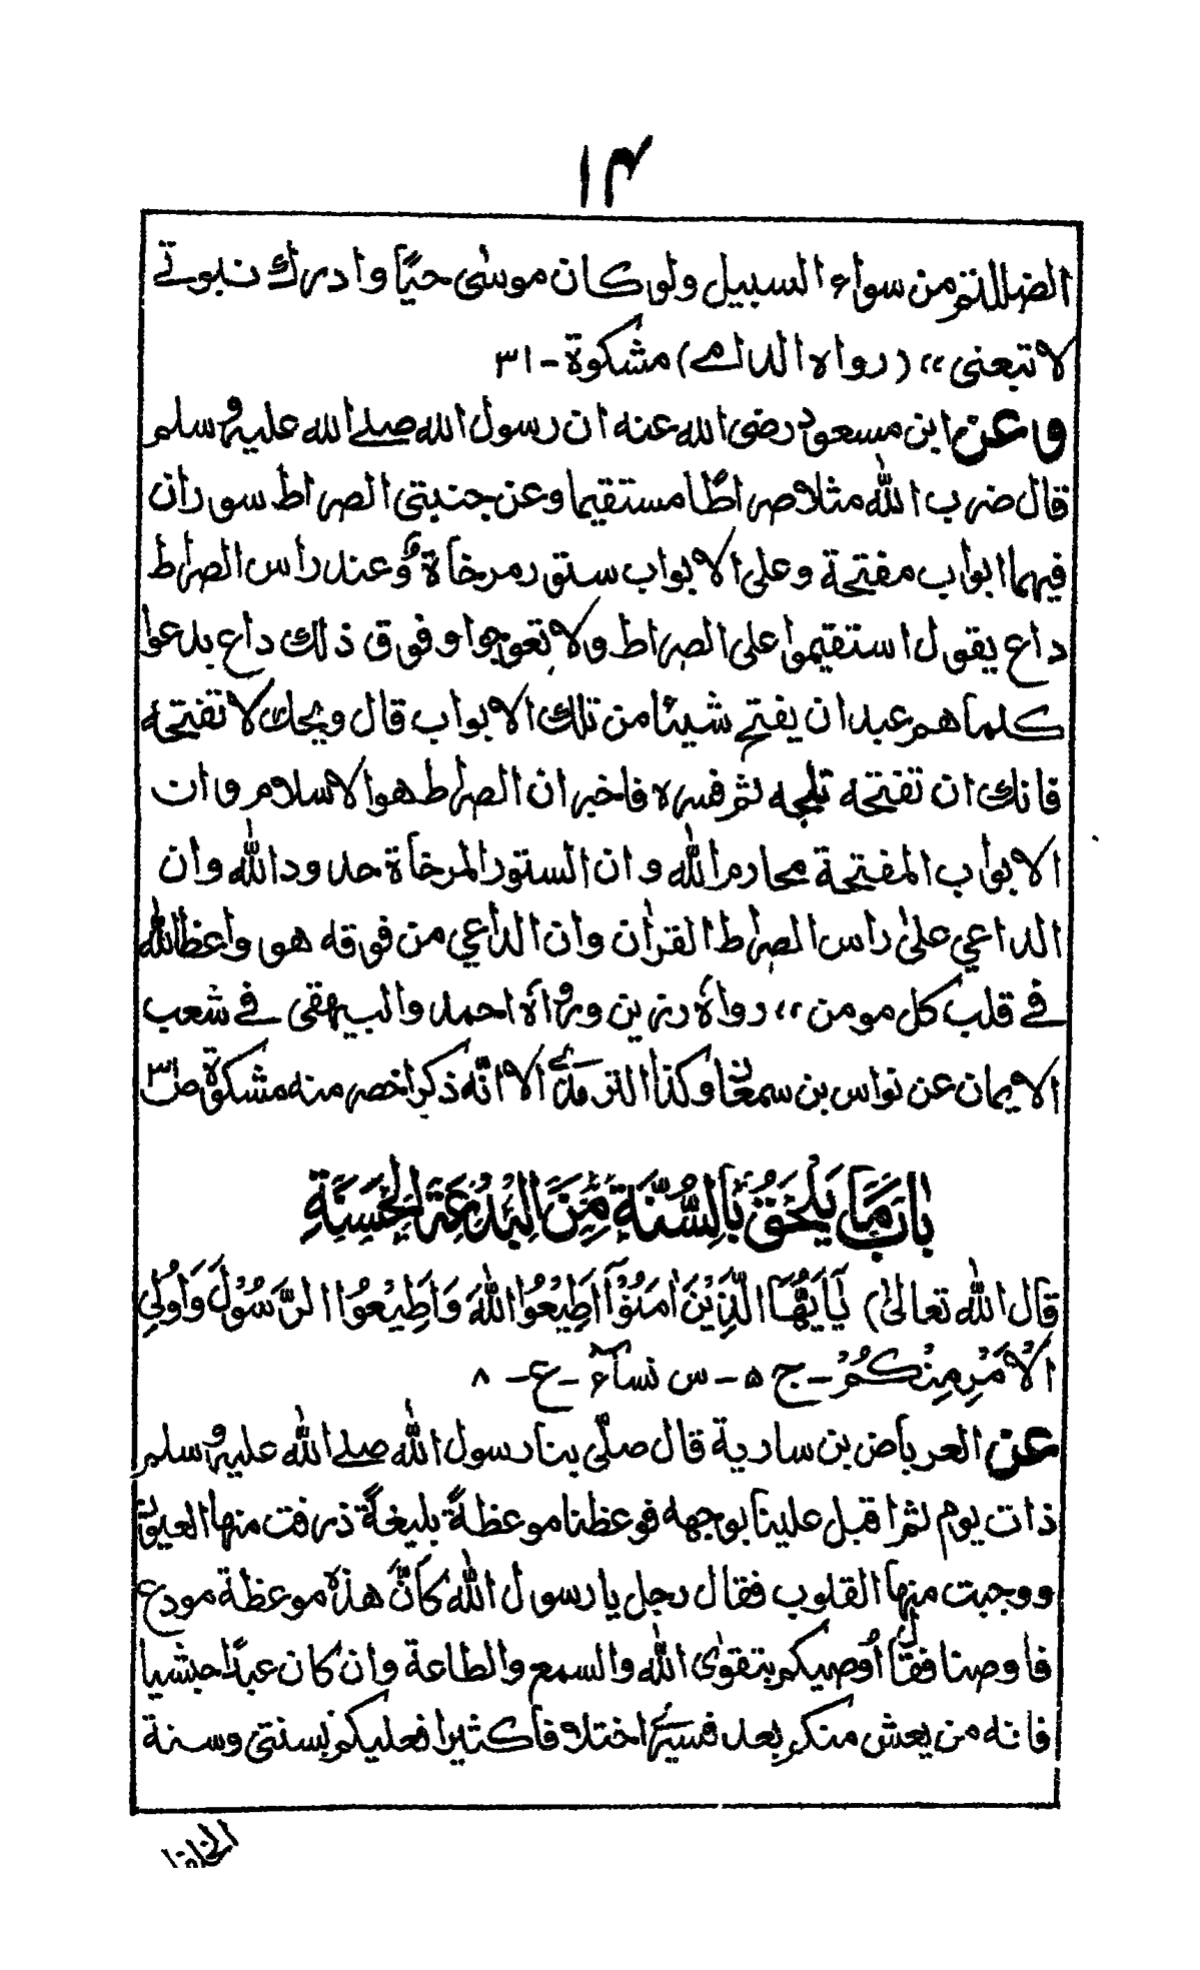 ١٤
الضللتم من سواء السبيل ولو كان موسٰی حيًّا وادرك نبوتے
لاتبعنی،، (رواه الدارمے) مشكوة - ٣١
وعن ابن مسعود رضی الله عنه ان رسول الله صلے الله عليه وسلم
قال ضرب اللّٰه مثلا صراطًا مستقيما وعن جنبتی الصراط سوران
فيهما ابواب مفتحة وعلی الابواب ستور مرخاة وعند راس الصراط
داع يقول استقيموا علی الصراط ولا تعوجوا وفوق ذلك داع يدعوا
كلما هم عبد ان يفتح شيئا من تلك الابواب قال ويحك لا تفتحه
فانك ان تفتحه تلجه ثم فسره فاخبر ان الصراط هو الاسلام وان
الابواب المفتحة محارم اللّٰه وان الستور المرخاة حدود اللّٰه وان
الداعي علیٰ راس الصراط القراٰن وان الداعي من فوقه هو واعظ اللّٰه
فے قلب كل مومن،، رواه رزين ورواه احمد والبيهقی فے شعب
الايمان عن نواس بن سمعان وكذا الترمذی الا انّه ذكر اخصر منه مشكوة ص٣١
بَابُ مَا يَلْحَقُ بِالسُّنَّةِ مِنَ الْبِدْعَةِ الْحَسَنَةِ
قال اللّٰه تعالیٰ) يٰٓاَيُّهَا الَّذِيْنَ اٰمَنُوْٓا اَطِيْعُوا اللّٰهَ وَاَطِيْعُوا الرَّسُوْلَ وَاُولِی
الْاَمْرِ مِنْكُمْ - ج ٥ - س نسآء - ع - ٨
عن العرباض بن سارية قال صلّی بنا رسول اللّٰه صلے اللّٰه عليه وسلم
ذات يوم ثم اقبل علينا بوجهه فوعظنا موعظةً بليغةً ذرفت منها العيون
ووجبت منها القلوب فقال رجل يا رسول اللّٰه كأنَّ هذه موعظة مودع
فاوصنا فقال اُوصيكم بتقوی اللّٰه والسمع والطاعة وان كان عبدًا حبشيا
فانه من يعش منكم بعد فسيری اختلافا كثيرا فعليكم بسنتی وسنة
الخلفا